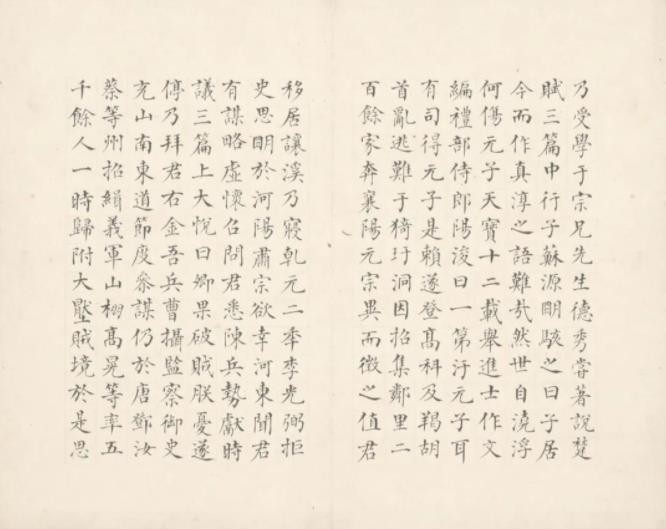 乃受學于宗兄先生德秀嘗著說楚
賦三篇中行子蘇源明駭之曰子居
今而作真淳之語難㢤然世自澆浮
何傷元子天寶十二載舉進士作文
編禮部侍郎陽浚曰一第汙元子耳
有司得元子是賴遂登高科及羯胡
首亂逃難于猗玗洞因招集鄰里二
百餘家奔襄陽元宗異而徵之值君
移居讓溪乃寢乹元二年李光弼拒
史思明於河陽肅宗欲幸河東聞君
有謀略虛懷召問君悉陳兵勢獻時
議三篇上大悅曰卿果破賊朕憂遂
停乃拜君右金吾兵曹攝監察御史
充山南東道節度叅謀仍於唐鄧汝
蔡等州招緝義軍山棚高晃等率五
千餘人一時歸附大壓賊境於是思